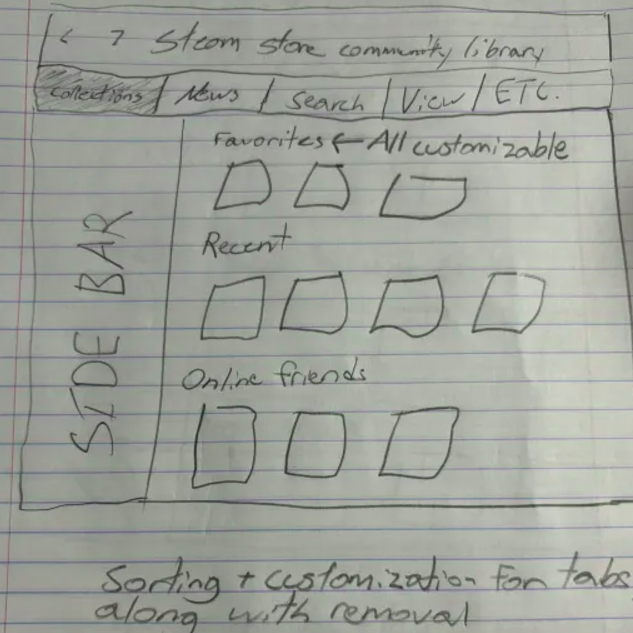 < > Steam store community library
Collections / News / Search / View / ETC.
Favorites ← All customizable
Recent
SIDE BAR
Online friends
Sorting + customization For tabs
along with removal